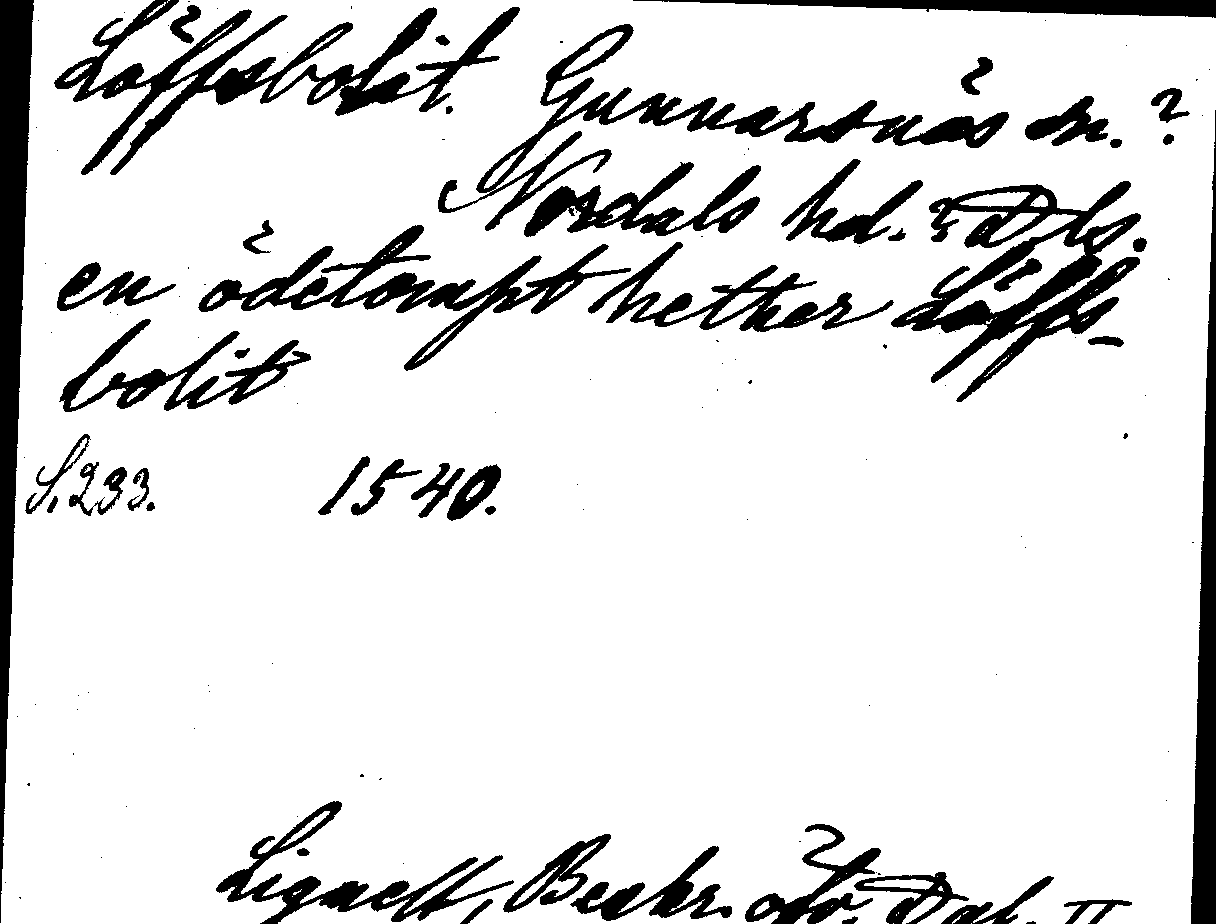 Löffsbolit. Gunnarsnäs sn.?
Nordals hd.? Dls.
en ödetompt hether Löffs-
bolit
S. 233. 1540.
Lignell, Beskr. öfv. Dal. II